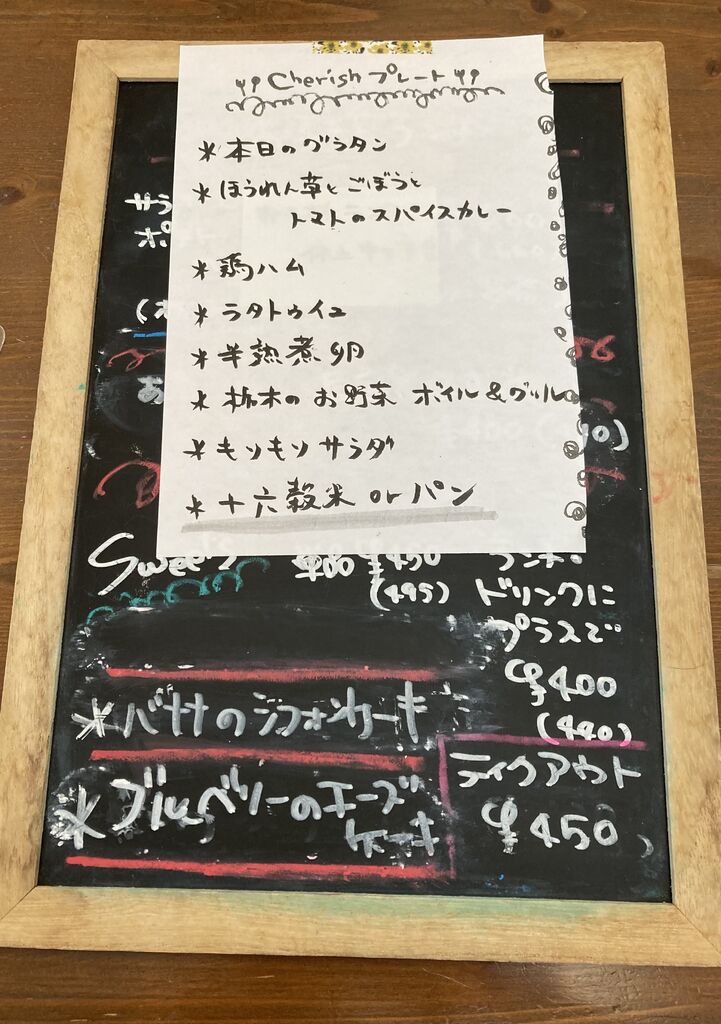 Cherish プレート
* 本日のグラタン
* ほうれん草とごぼうと
トマトのスパイスカレー
* 鶏ハム
* ラタトゥイユ
* 半熟煮卵
* 栃木のお野菜 ボイル&グリル
* もりもりサラダ
* 十六穀米 or パン
サラ
ポ
あ
10)
Sweets ¥450
(495)
ランチ・
ドリンクに
プラスで
¥400
(440)
* バナナのシフォンケーキ
* ブルーベリーのチーズ
ケーキ
テイクアウト
¥450